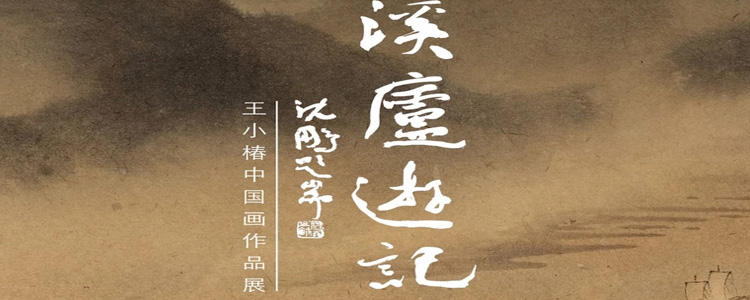 溪廬遊記
沈鵬题耑
王小椿中国画作品展